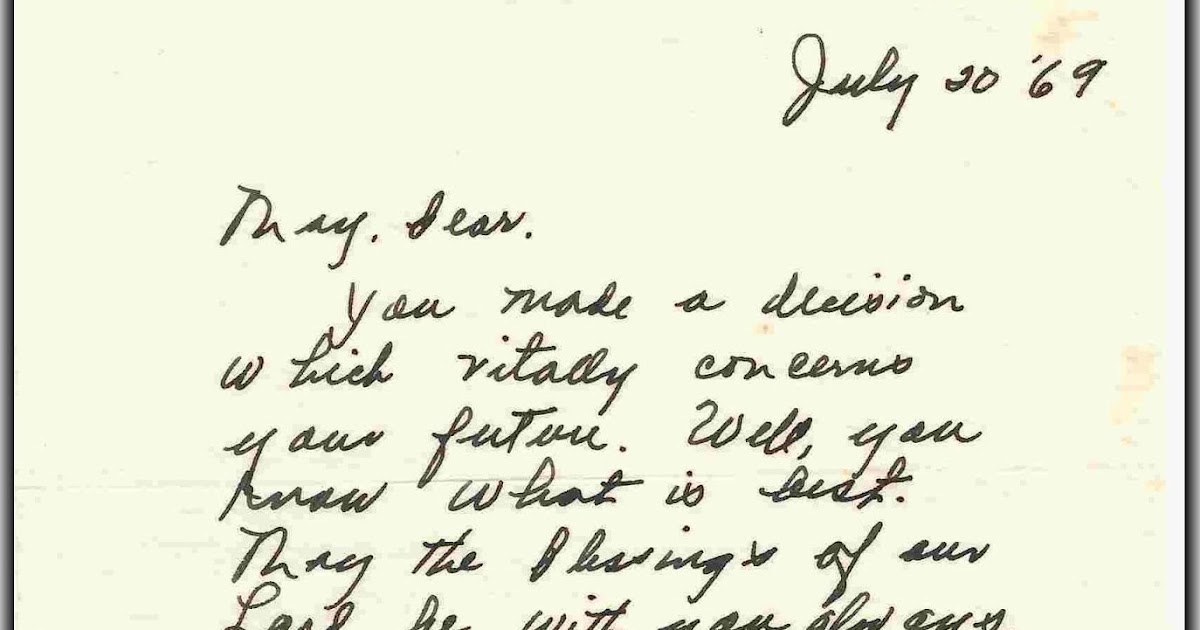 July 20 '69
May. Dear.
You made a decision
which vitally concerns
your future. Well, you
know what is best.
May the blessings of our
Lord be with you always